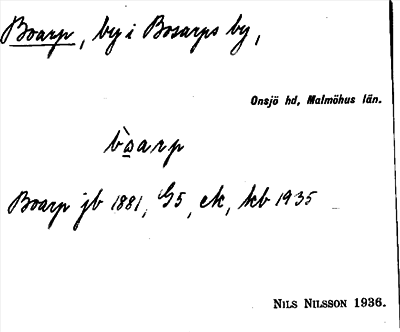 Boarp, by i Bosarps by,
Onsjö hd, Malmöhus län.
bo̲arp
Boarp jb 1881, G5, ek, kb 1935
NILS NILSSON 1936.